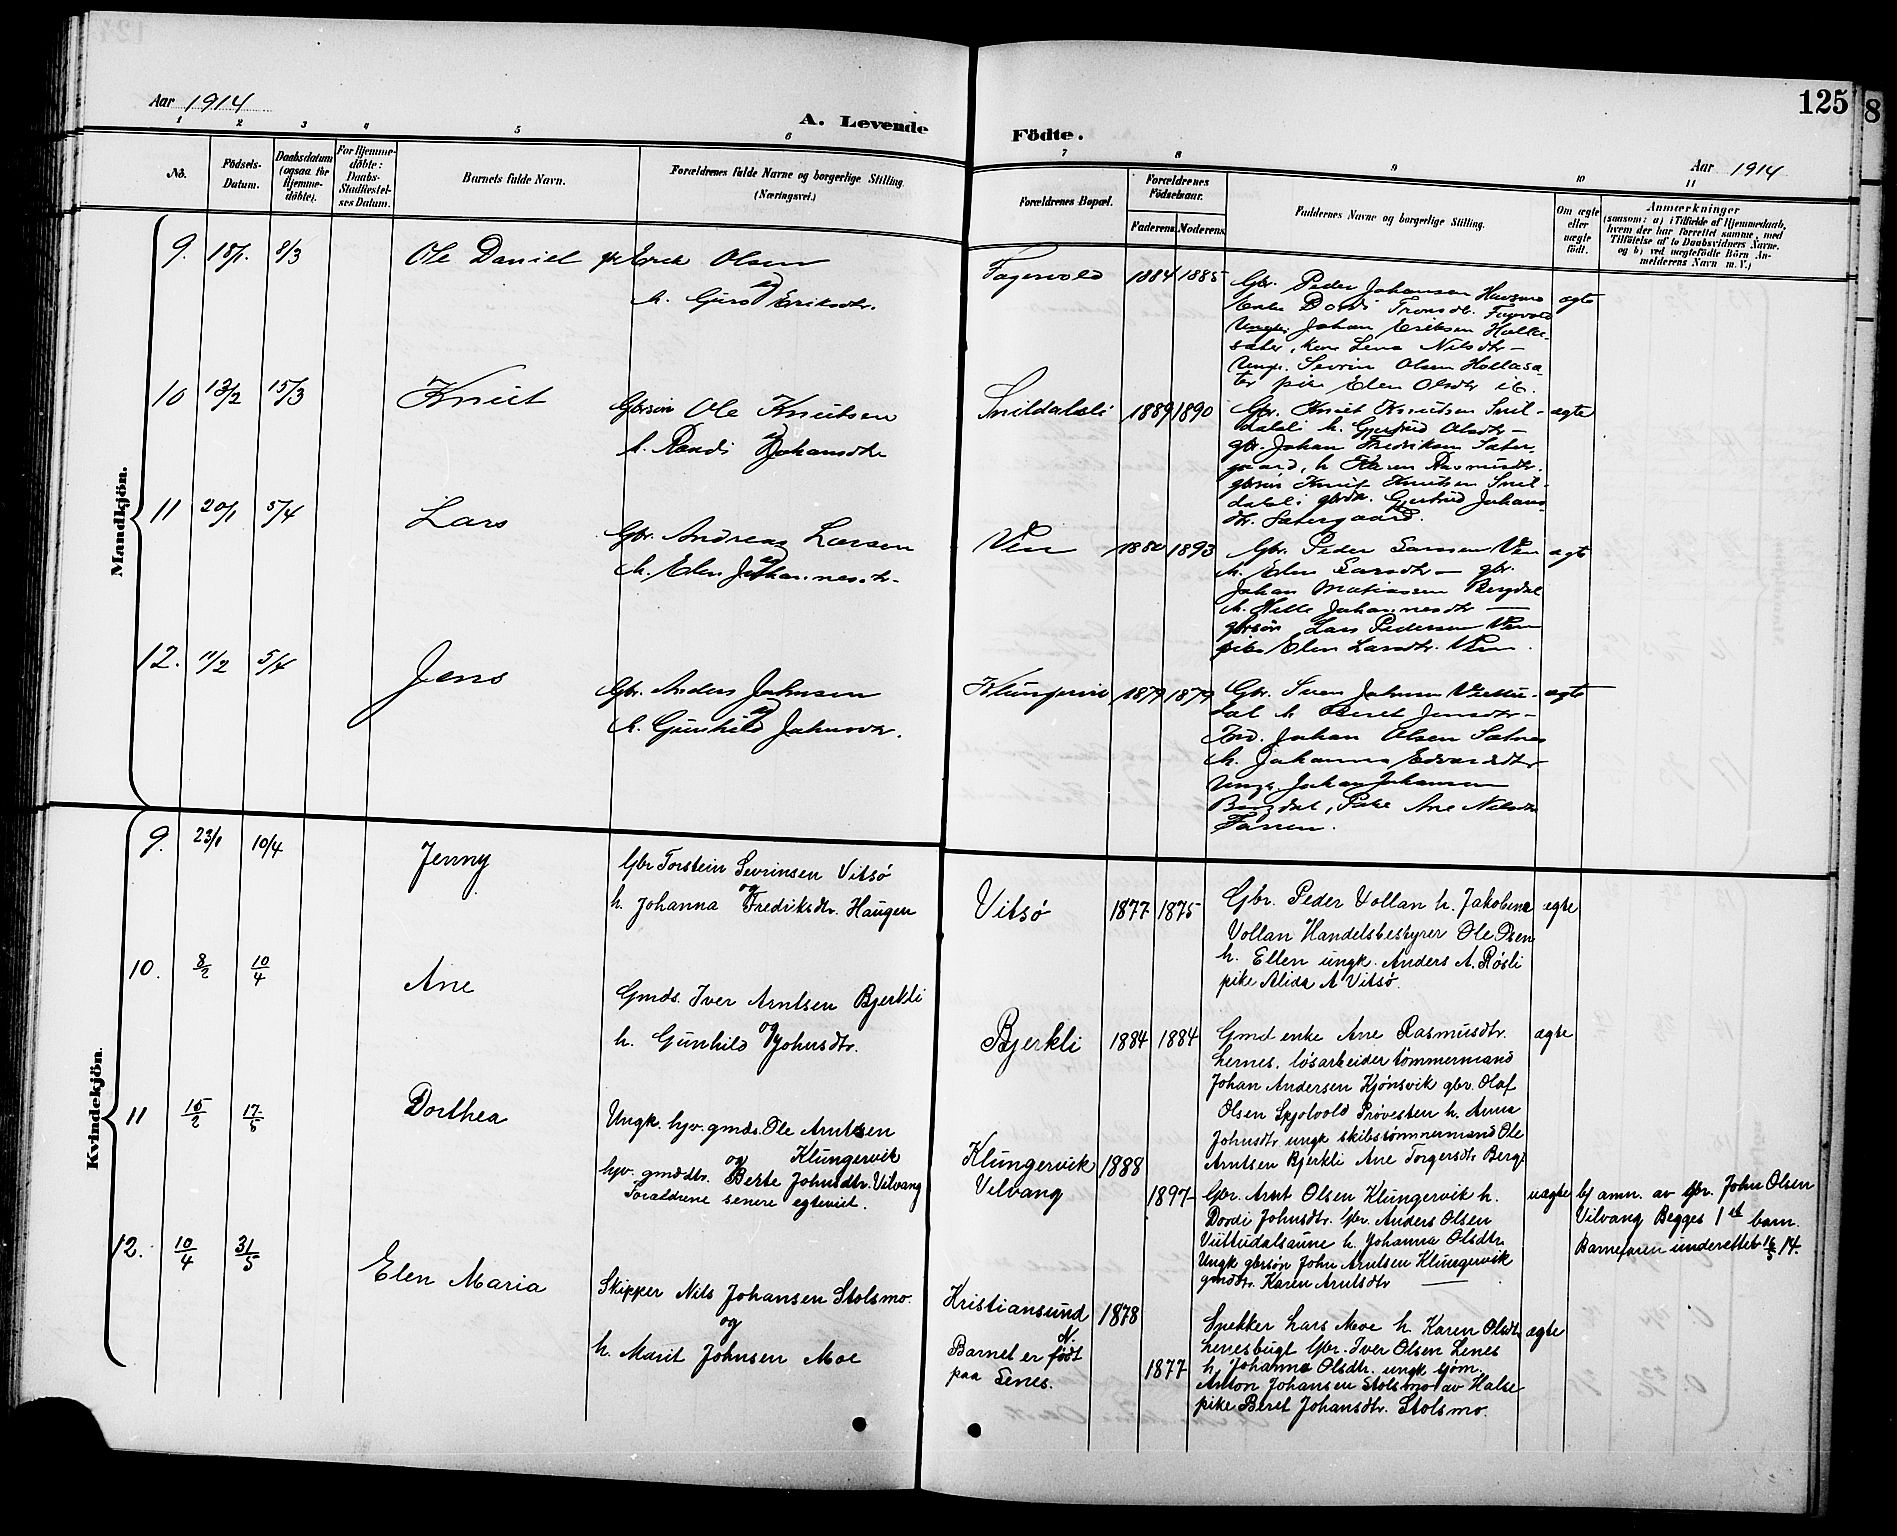 Aar 1914
A. Levende
Födte.
125
Aar 1914
8
1 2 3 4 5 6 7 8 9 10 11
No.
Födsels-
Datum.
Daabsdatum
(ogsaa for
Hjemme-
döbte).
For Hjemme-
döbte:
Daabs-
Stadfæstel-
ses Datum.
Barnets fulde Navn.
Forældrenes fulde Navne og borgerlige Stilling.
(Næringsvei.)
Forældrenes Bopæl.
Forældrenes
Födselsaar.
Faderens. Moderens.
Faddernes Navne og borgerlige Stilling.
Om ægte
eller
uægte
födt.
Anmærkninger
(saasom: a) i Tilfælde af Hjemmedaab,
hvem der har forrettet samme, med
Tilföielse af to Daabsvidners Navne.
og b) ved uægtefödte Börn An-
melderens Navn m. V.)
Mandkjön.
9. 18/1. 8/3
Ole Daniel
Olsen
og
h. Eriksdtr.
Fagervold 1884 1885
Gbr. Peder Johansen
Enke Dordi
Johan Eriksen
Lena Nilsdtr
Ungk. Sevrin Olsen
pike Elen Olsdtr
ægte
10 13/2 15/3
Knut
Gbrsøn Ole Knutsen
og
h. Randi Johansdtr
Snildalsli 1889 1890
Gbr. Knut Knutsen Snil-
dalsli h. Gjertrud Olsdtr
gbr. Johan Fredriksen Sæter-
gaard, h. Karen Rasmusdtr.
gbrsøn Knut Knutsen Snil-
dalsli gbrdtr. Gjertrud Johans
dtr. Sætergaard.
ægte
11 20/1 5/4
Lars
Gbr. Andreas Larsen
og
h. Elen Johannesdtr.
Ven 1893
Gbr. Peder Larsen Ven
h. Elen Larsdtr - gbr.
Johan Matiassen Bergdal
h. Johannesdtr
gbrsøn Lars Pedersen Ven
pike Elen Larsdtr. Ven.
ægte
12. 11/2 5/4
Jens
Gbr. Anders Johnsen
og
h. Gunhild Johnsdtr.
Klungervik 1879 1879
Gbr. Johnsen
dal h. Beret Jensdtr
Johan Olsen
h. Johanna Edvardsdtr
Ungk. Johan Johansen
Bergdal, Pike Ane Nilsdtr
ægte
Kvindekjön.
9. 23/1 10/4
Jenny
Gbr Torstein Sevrinsen Vitsø
og
h. Johanna Fredriksdtr. Haugen
Vitsø 1877 1875
Gbr. Peder Vollan h. Jakobine
Vollan Handelsbestyrer Ole Osen
h. Ellen ungk. Anders A. Røsli
pike Alida A Vitsø.
ægte
10. 8/2 10/4
Ane
Gmds. Iver Arntsen Bjerkli
og
h. Gunhild Johnsdtr.
Bjerkli 1884 1884
Gmd enke Ane Rasmusdtr.
Lernes, løsarbeider tømmermand
Johan Andersen Kjønsvik gbr. Olaf
Olsen Spjolvold Prøvesten h. Anna
Johnsdtr ungk skibstømmermand Ole
Arntsen Bjerkli Ane Torgersdtr Berge
ægte
11 15/2 17/5
Dorthea
Ungk. hjv. gmds. Ole Arntsen
Klungervik
og
hjv. gmdsdtr. Berte Johnsdtr. Vilvang
Forældrene senere egteviet.
Klungervik 1888
Vilvang
1897
Gbr. Arnt Olsen Klungervik h.
Dordi Johnsdtr. Gbr. Anders Olsen
Vuttudalsaune h. Johanna Olsdtr.
Ungk gbrsøn John Arntsen Klungervik
gmdtr. Karen Arntsdtr
uægte
b) anm. av Gbr. John Olsen
Vilvang Begges 1st barn.
Barnefaren underettet 16/5 14.
12. 10/4 31/5
Elen Maria
Skipper Nils Johansen Stolsmo.
og
h. Marit Johnsen Moe
Kristiansund 1878
N.
Barnet er født
paa Lenes.
1877
Snekker Lars Moe h. Karen Olsdtr
Lenesbugt Gbr. Iver Olsen Lenes
h. Johanna Olsdtr. ungk sjøm.
Anton Johansen Stolsmo av Halse
pike Beret Johansdtr. Stolsmo.
ægte